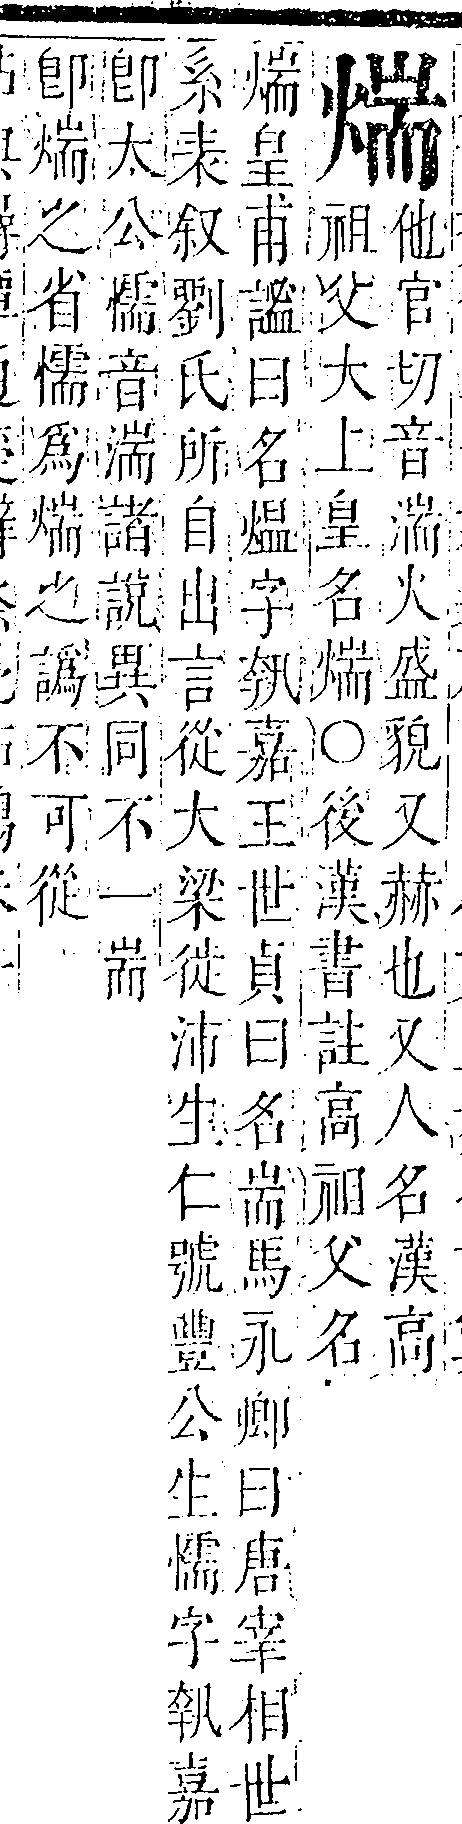 煓
他官切音湍火盛貌又赫也又人名漢高
祖父大上皇名煓○後漢書註高祖父名
煓皇甫謐曰名熅字執嘉王世貞曰名耑馬永卿曰唐宰相世
系表叙劉氏所自出言從大梁徙沛生仁號豐公生懦字執嘉
卽太公懦音湍諸說異同不一耑
卽煓之省懦爲煓之譌不可從